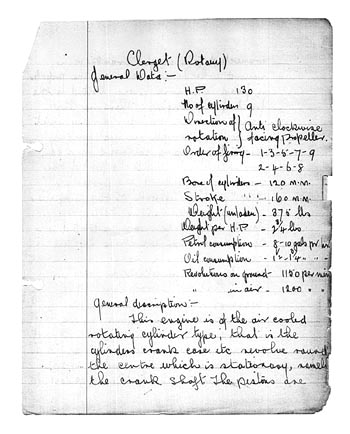 Clerget (Rotary)
General Data:-
H.P 130
No of cylinders 9
Direction of } Anti clockwise
rotation } facing propeller.
Order of firing - 1-3-5-7-9
2-4-6-8
Bore of cylinders - 120 m.m.
Stroke " " - 160 m.m.
Weight (unladen) - 375 lbs
Weight per H.P - lbs
Petrol consumption - 8-10 gals per
Oil consumption -
Revolutions on ground - 1150 per min
" in air - 1200 " "
General description:-
This engine is of the air cooled
rotating cylinder type; that is the
cylinders crank case etc revolve round
the centre which is stationary, namely
the crank shaft The pistons are